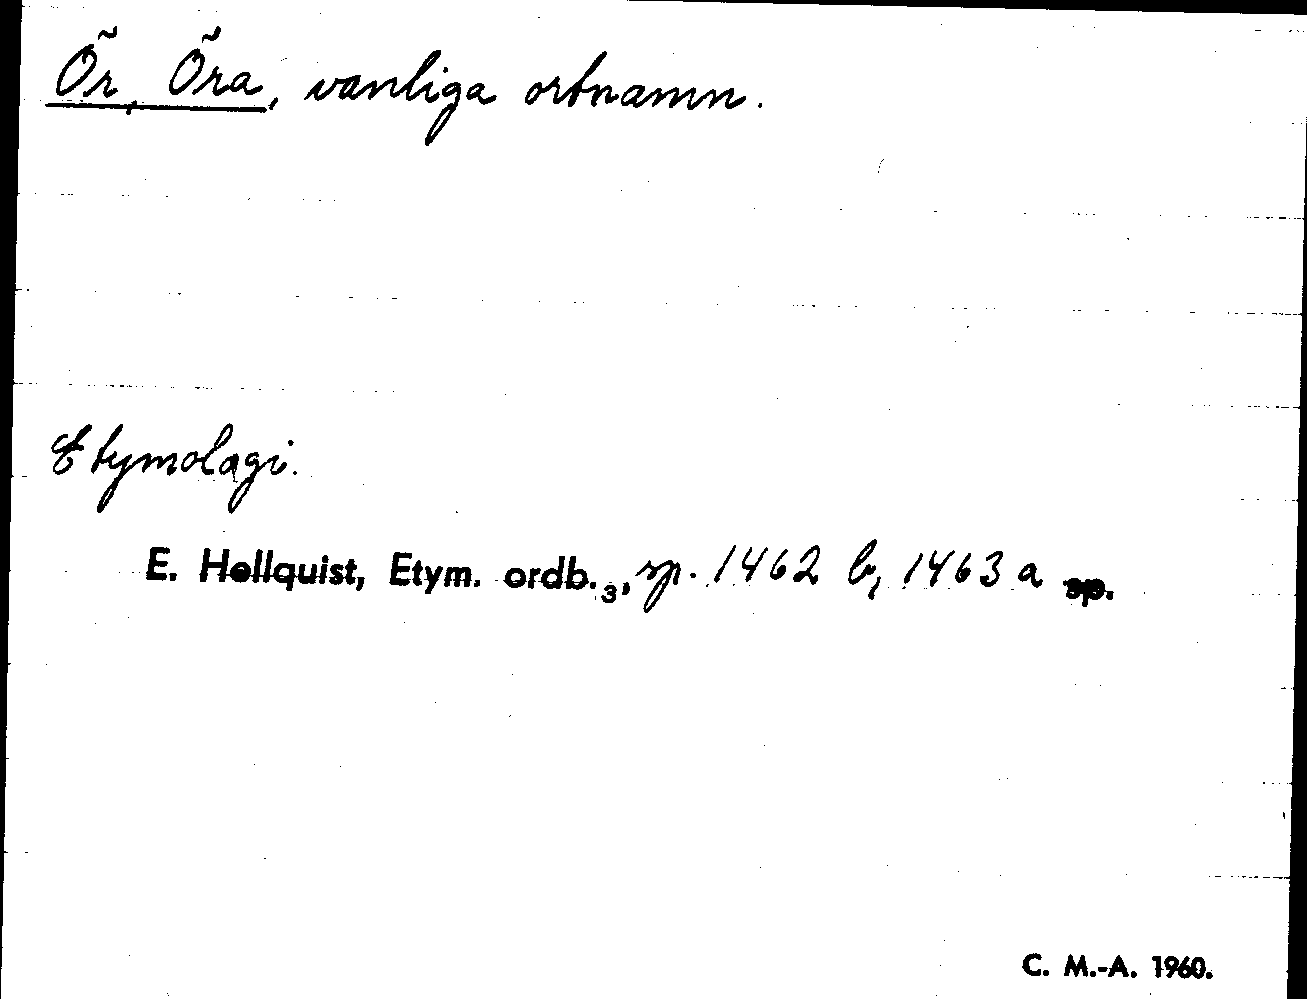 Ör, Öra, vanliga ortnamn.
Etymologi.
E. Hellquist, Etym. ordb.₃, sp. 1462 b, 1463 a sp.
C. M.-A. 1960.